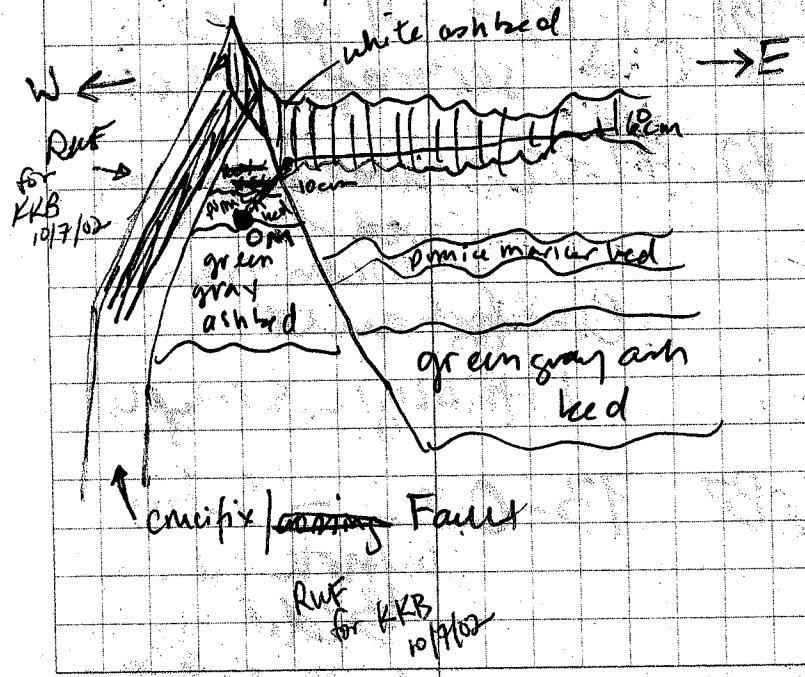 white ash bed
W ← → E
RWF
for
KKB
10/7/02
10 cm
10 cm
pumice bed
0 m
green
gray
ash bed
pumice marker bed
green gray ash
bed
crucifix / Fault
RWF
for KKB
10/7/02